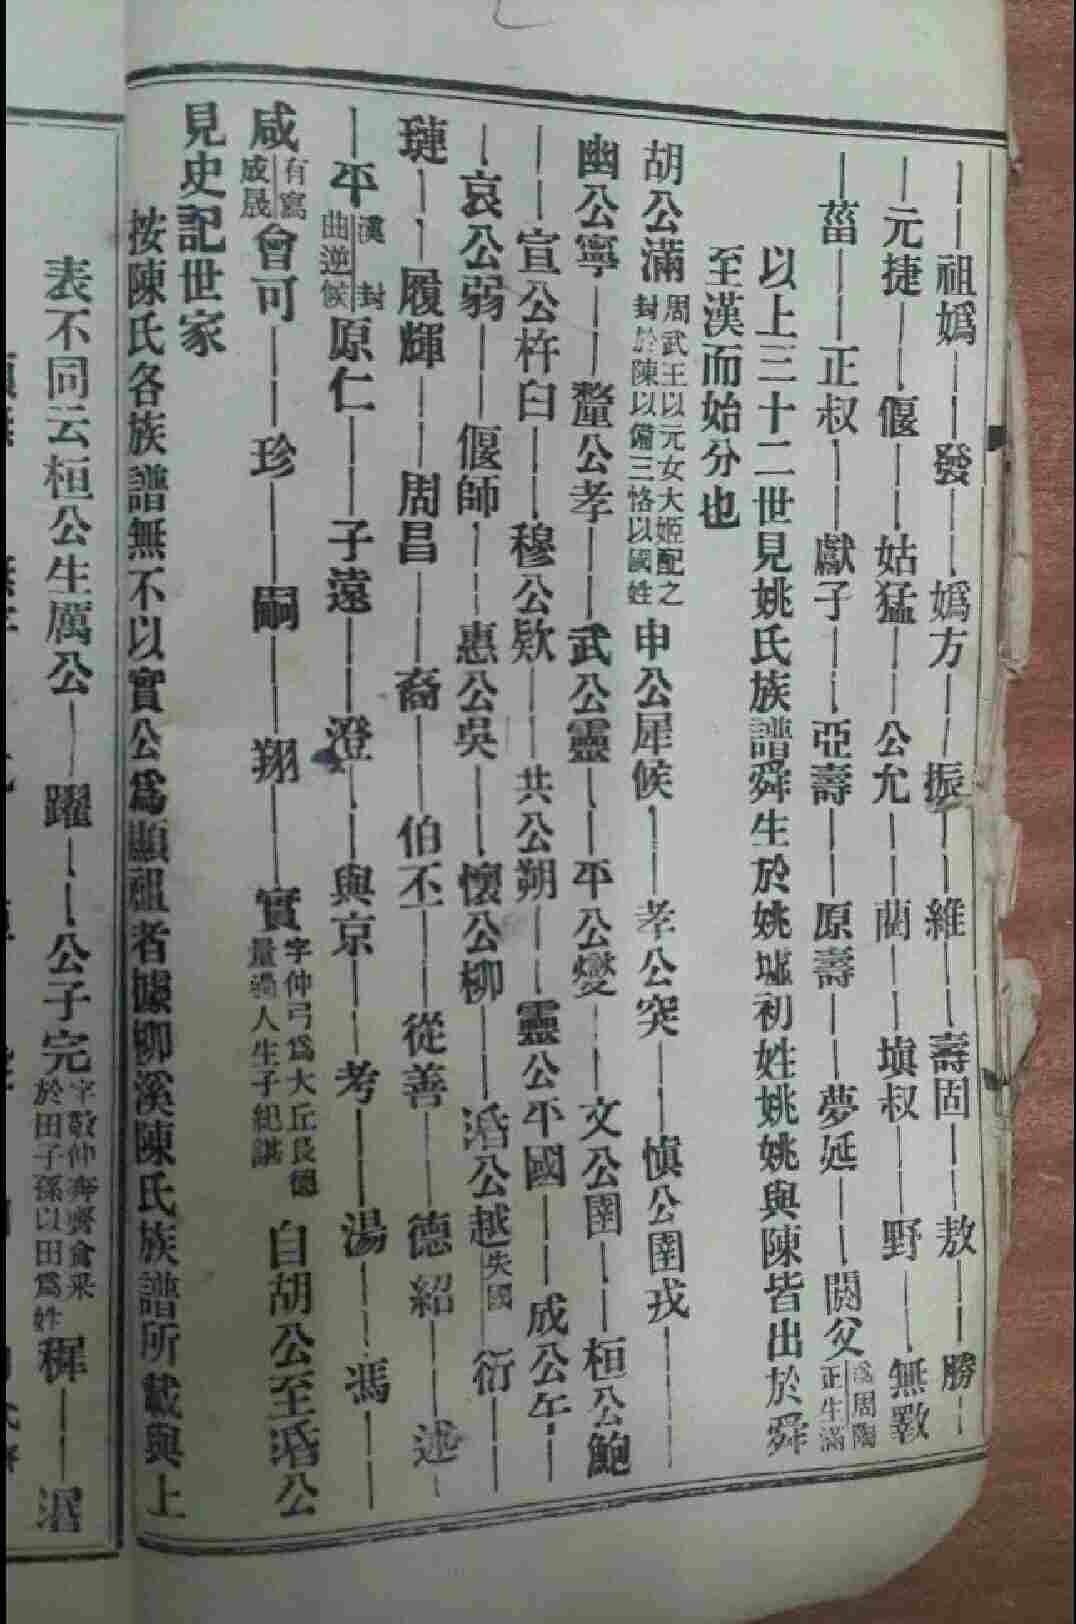 祖嬀——發——嬀方——振——維——壽固——敖——勝
元捷——偃——姑猛——公允——藺——塡叔——野——無斁
菑——正叔——獻子——亞壽——原壽——夢延——閼父爲周陶正生滿
以上三十二世見姚氏族譜舜生於姚墟初姓姚姚與陳皆出於舜
至漢而始分也
胡公滿周武王以元女大姬配之封於陳以備三恪以國姓 申公犀候——孝公突——愼公圉戎
幽公寧——釐公孝——武公靈——平公燮——文公圉——桓公鮑
宣公杵臼——穆公欵——共公朔——靈公平國——成公午
哀公弱——偃師——惠公吳——懷公柳——湣公越失國 衍
璉——履輝——周昌——裔——伯丕——從善——德紹——述
平漢封曲逆候 原仁——子遠——澄——與京——考——湯——馮
咸有寫咸晟 會可——珍——嗣——翔——實字仲弓爲大丘長德量過人生子紀諶 自胡公至湣公
見史記世家
按陳氏各族譜無不以實公爲顯祖者據柳溪陳氏族譜所載與上
表不同云桓公生厲公——躍——公子完字敬仲奔齊食采於田子孫以田爲姓 穉——湣